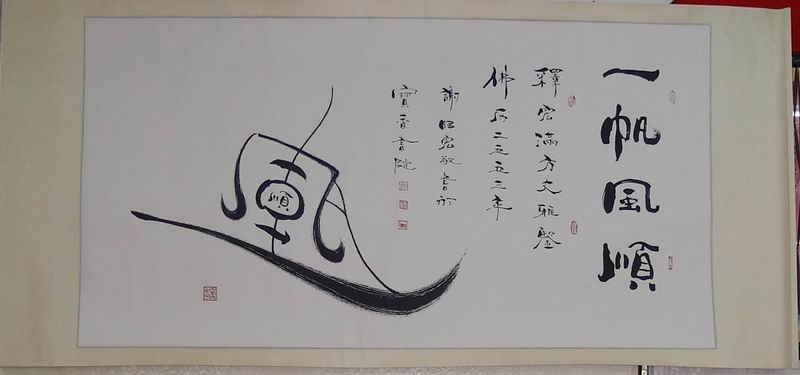 一帆風順
釋宏滿方丈雅鑒
佛历二五五三年
謝昭宏敬書於
寶香書院
風
順